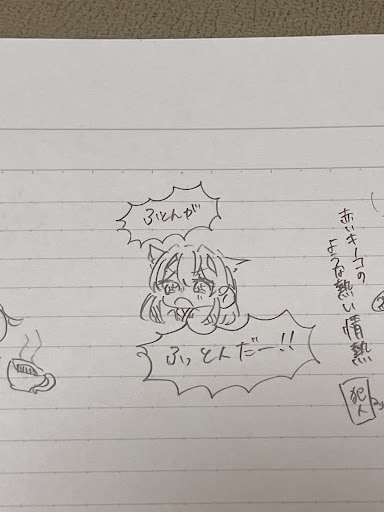 ふとんが
ふっとんだー!!
赤いキーコの
ような熱い情熱
犯人